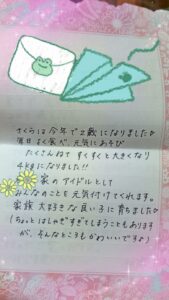 さくらは今年で2歳になりました♡
毎日よく食べ、元気にあそび
たくさんねて すくすくと大きくなり
4kgになりました!!
家のアイドルとして
みんなのことを元気付けてくれます。
家族大好きな良い子に育ちました♡
(ちょっとはしゃぎすぎてしまうこともあります
が、そんなところもかわいいですよ)